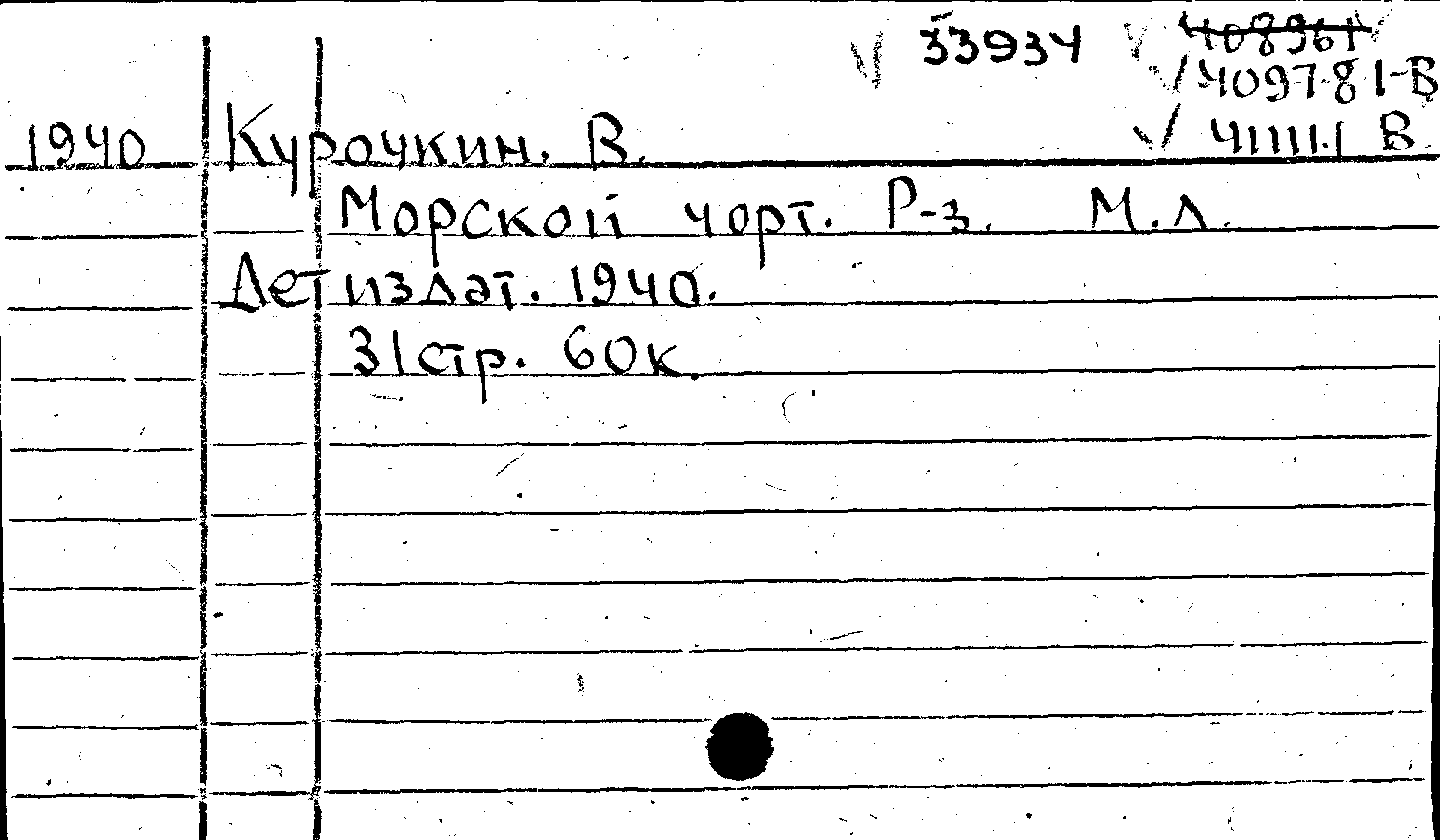 33934 408961
409781-В
1940 Курочкин. В. 41111.1 В
Морской чорт. Р-з. М.Л.
Детиздат. 1940.
31стр. 60к.